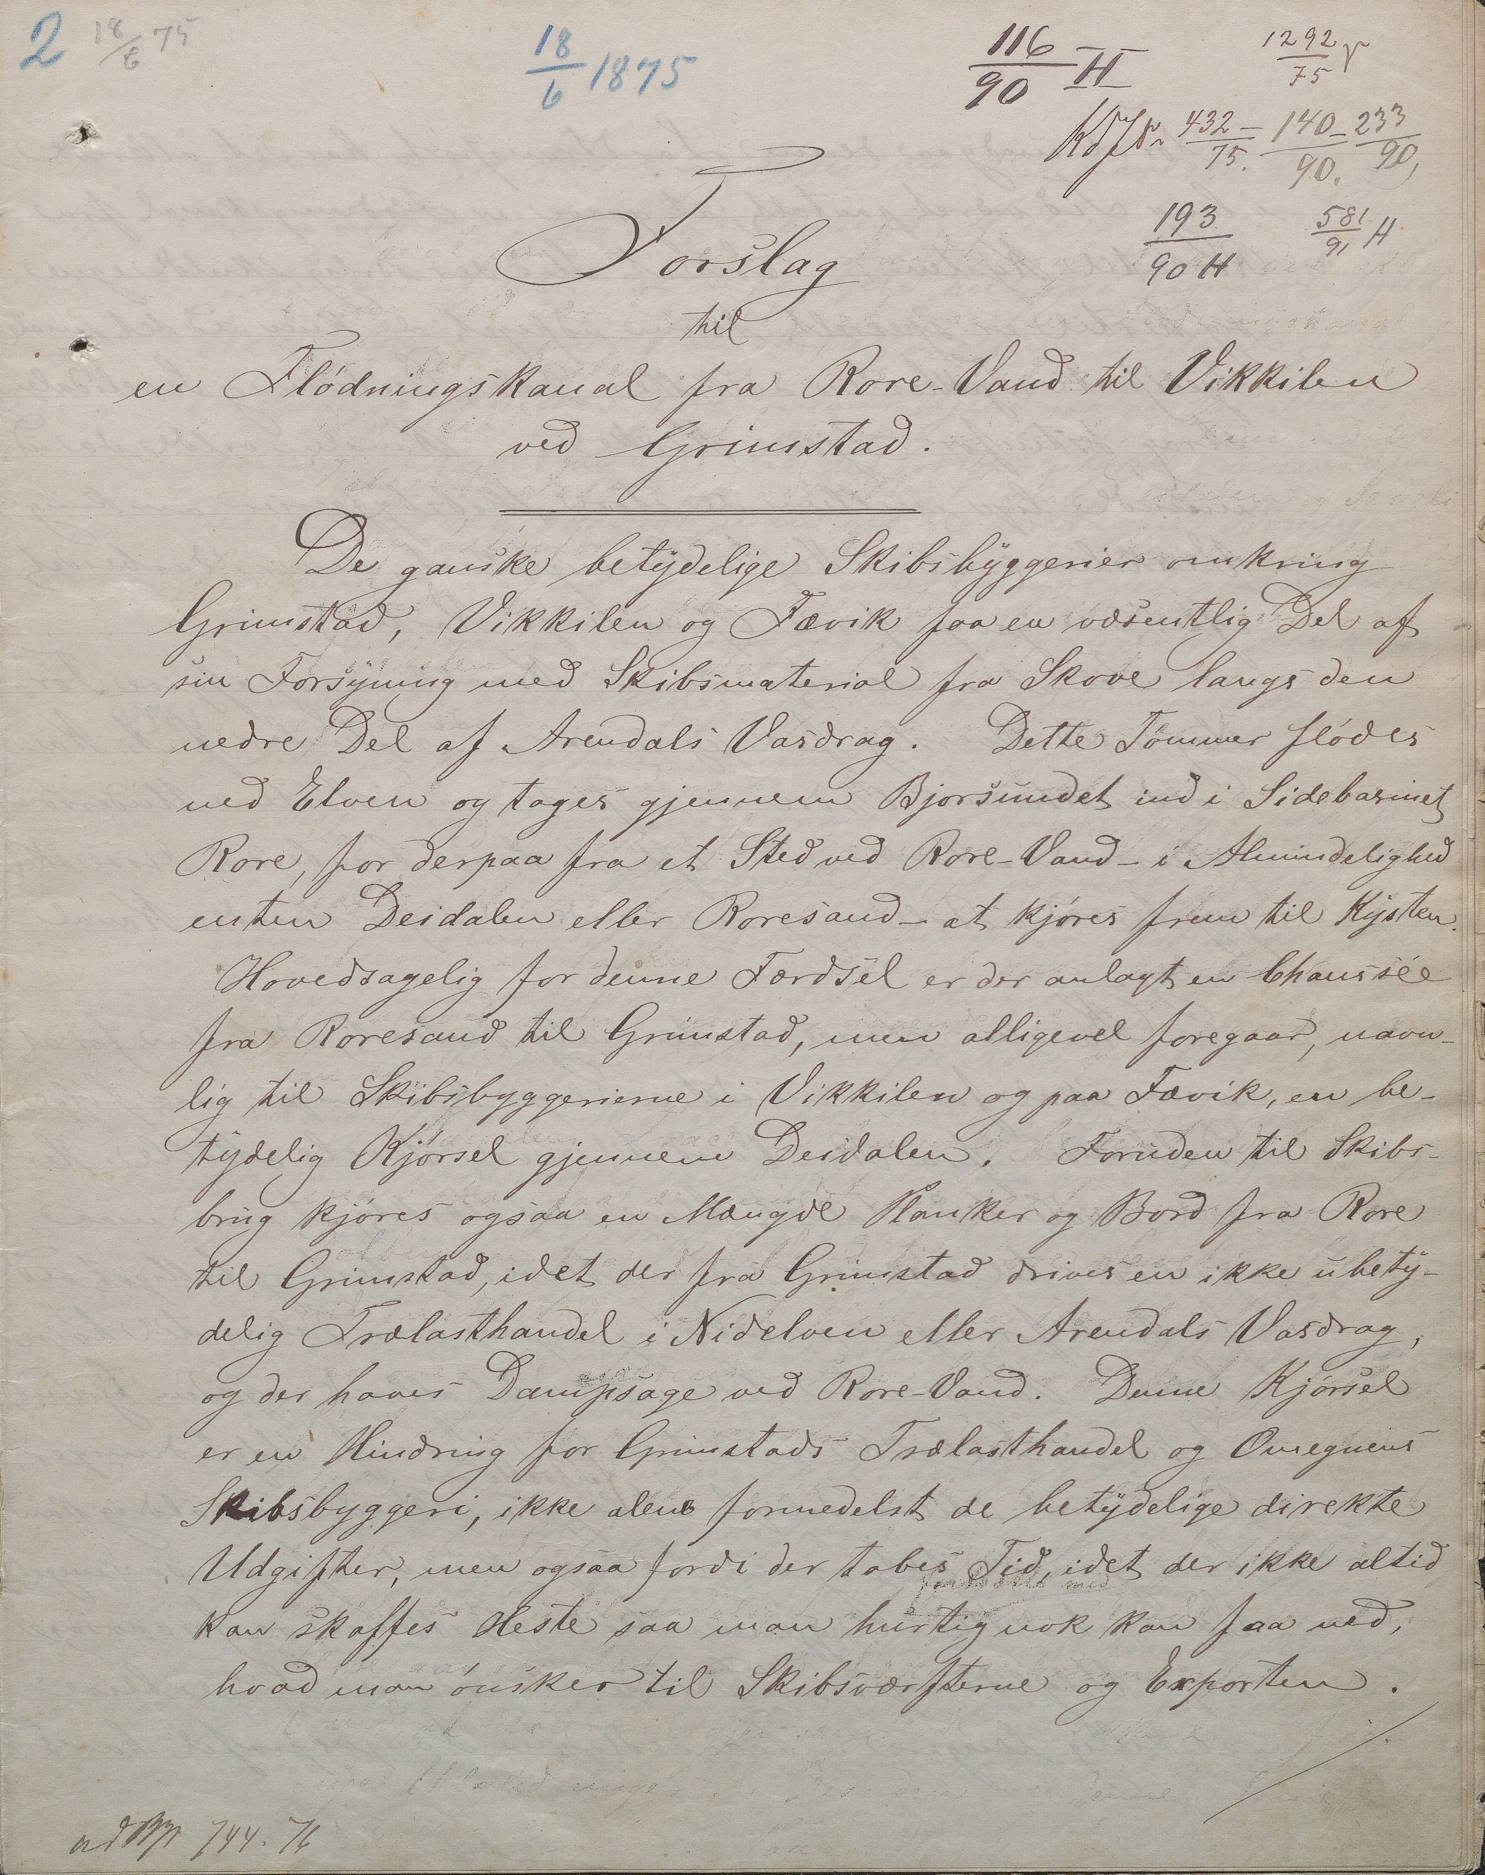 2 18/6 75
18/6 1875
116/90 H
1292/75
432/75. - 140/90. - 233/90,
193/90 H
581/91 H
Forslag
til
en Flödningskanal fra Rore-Vand til Vikkilen
ved Grimstad.
De ganske betydelige Skibsbyggerier omkring
Grimstad, Vikkilen og Fævik faa en væsentlig Del af
sin Forsyning med Skibsmaterial fra Skove langs den
nedre Del af Arendals Vasdrag. Dette Tømmer flödes
ned Elven og tages gjennem Bjorsundet ind i Sidebasinet
Rore, for derpaa fra et Sted ved Rore-Vand - i Almindelighed
enten Deidalen eller Roresand - at kjöres frem til Kysten.
Hovedsagelig for denne Færdsel er der anlagt en Chaussée
fra Roresand til Grimstad, men alligevel foregaar, navn-
lig til Skibsbyggerierne i Vikkilen og paa Fævik, en be-
tydelig Kjörsel gjennem Deidalen. Foruden til Skibs-
brug kjöres ogsaa en Mængde Planker og Bord fra Rore
til Grimstad, idet der fra Grimstad drives en ikke ubety-
delig Trælasthandel i Nidelven eller Arendals Vasdrag,
og der haves Dampsage ved Rore-Vand. Denne Kjörsel
er en Hindring for Grimstads Trælasthandel og Omegnens
Skibsbyggeri, ikke alene formedelst de betydelige direkte
Udgifter, men ogsaa fordi der tabes Tid, idet der ikke altid
kan skaffes Heste saa man hurtig nok kan faa ned,
hvad man önsker til Skibsværfterne og Exporten.
744. 76